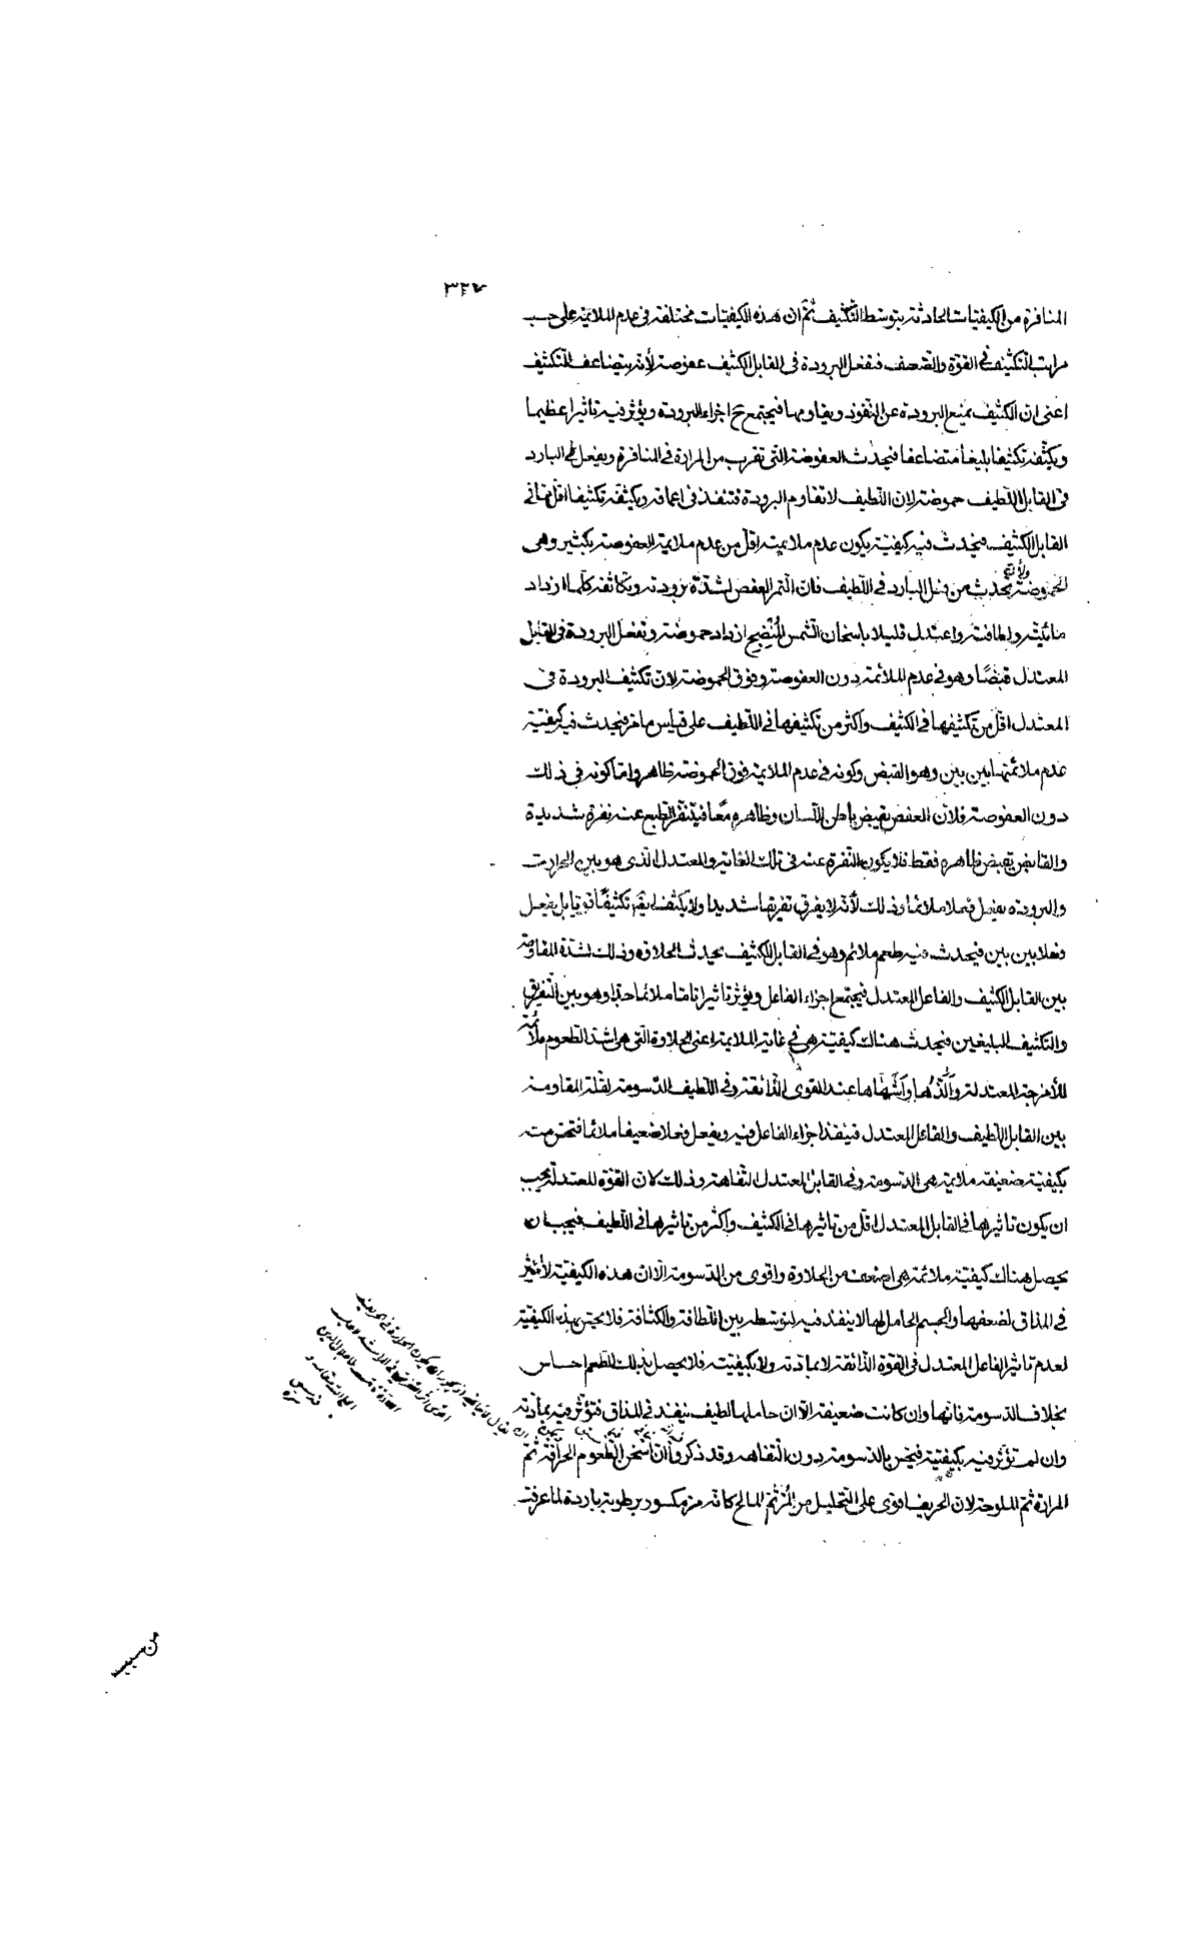 ٣٢٧
المنافرة من الكيفيات الحادثة بتوسط التكثيف ثم ان هذه الكيفيات مختلفة في عدم الملايمة على حسب
مراتب التكثيف في القوة والضعف فتفعل البرودة في القابل الكثيف عفوصة لأنه يتضاعف التكثيف
اعنى ان الكثيف يمنع البرودة عن النفوذ ويقاومها فيجتمع ح اجزاء البرودة ويؤثر فيه تأثيرا عظيما
ويكثفه تكثيفا بليغا متضاعفا فيحدث العفوصة التى تقرب من المرارة في المنافرة ويفعل البارد
في القابل اللطيف حموضة لان اللطيف لا تقاوم البرودة فتنفذ في اعماقه ويكثفه تكثيفا اقل مما في
القابل الكثيف فيحدث فيه كيفية يكون عدم ملايمته اقل من عدم ملايمة العفوصة بكثير وهى
الحموضة ولأنه يحدث من فعل البارد في اللطيف فان الثمر العفص لشدة برودته وتكاثفه كلما ازداد
مائية ولطافة واعتدل قليلا باسخان الشمس المنضج ازداد حموضة وتفعل البرودة في القابل
المعتدل قبضًا وهو في عدم الملائمة دون العفوصة وفوق الحموضة لان تكثيف البرودة في
المعتدل اقل من تكثيفها في الكثيف واكثر من تكثيفها في اللطيف على قياس ما مر فيحدث فيه كيفية
عدم ملائمتها بين بين وهو القبض وكونه في عدم الملايمة فوق الحموضة ظاهر واما كونه في ذلك
دون العفوصة فلان العفص يقبض باطن اللسان وظاهره معًا فيتنفر الطبع عنه نفرة شديدة
والقابض يقبض ظاهره فقط فلا يكون النفرة عنه في تلك الغاية والمعتدل الذى هو بين الحرارة
والبرودة يفعل فعلا ملائما وذلك لأنه لا يفرق تفريقا شديدا ولا يكثف ايضا تكثيفًا قويا بل يفعل
فعلا بين بين فيحدث منه طعم ملائم وهو في القابل الكثيف يحدث الحلاوة وذلك لشدة المقاومة
بين القابل الكثيف والفاعل المعتدل فيجتمع اجزاء الفاعل ويؤثر تاثيرا تاما ملائما جدا وهو بين التفريق
والتكثيف البليغين فيحدث هناك كيفية هى في غاية الملايمة اعنى الحلاوة التى هى اشد الطعوم ملائمة
للأمزجة المعتدلة وألذها وأشهاها عند القوى الذائقة وفى اللطيف الدسومة لقلة المقاومة
بين القابل اللطيف والفاعل المعتدل فينفذ اجزاء الفاعل فيه ويفعل فعلا ضعيفا ملائما فتحس منه
بكيفية ضعيفة ملايمة هى الدسومة وفى القابل المعتدل التفاهة وذلك لان القوة المعتدلة يجب
ان يكون تاثيرها في القابل المعتدل اقل من تاثيرها في الكثيف واكثر من تاثيرها في اللطيف فيجب ان
يحصل هناك كيفية ملائمة هى اضعف من الحلاوة واقوى من الدسومة الا ان هذه الكيفية لا تؤثر
في المذاق لضعفها والجسم الحامل لها لا ينفذ فيه لتوسطه بين اللطافة والكثافة فلا يحس بهذه الكيفية
لعدم تاثير الفاعل المعتدل في القوة الذائقة لا بمادته ولا بكيفيته فلا يحصل بذلك الطعم احساس
بخلاف الدسومة فانها وان كانت ضعيفة الا ان حاملها لطيف ينفذ في المذاق فتؤثر فيه بمادته
وان لم تؤثر فيه بكيفيته فيحس بالدسومة دون التفاهة وقد ذكروا ان اسخن الطعوم الحرافة ثم
المرارة ثم الملوحة لان الحريف اقوى على التحليل من المر ثم المالح كانه مر مكسور برطوبة باردة لما عرفت
من سبب